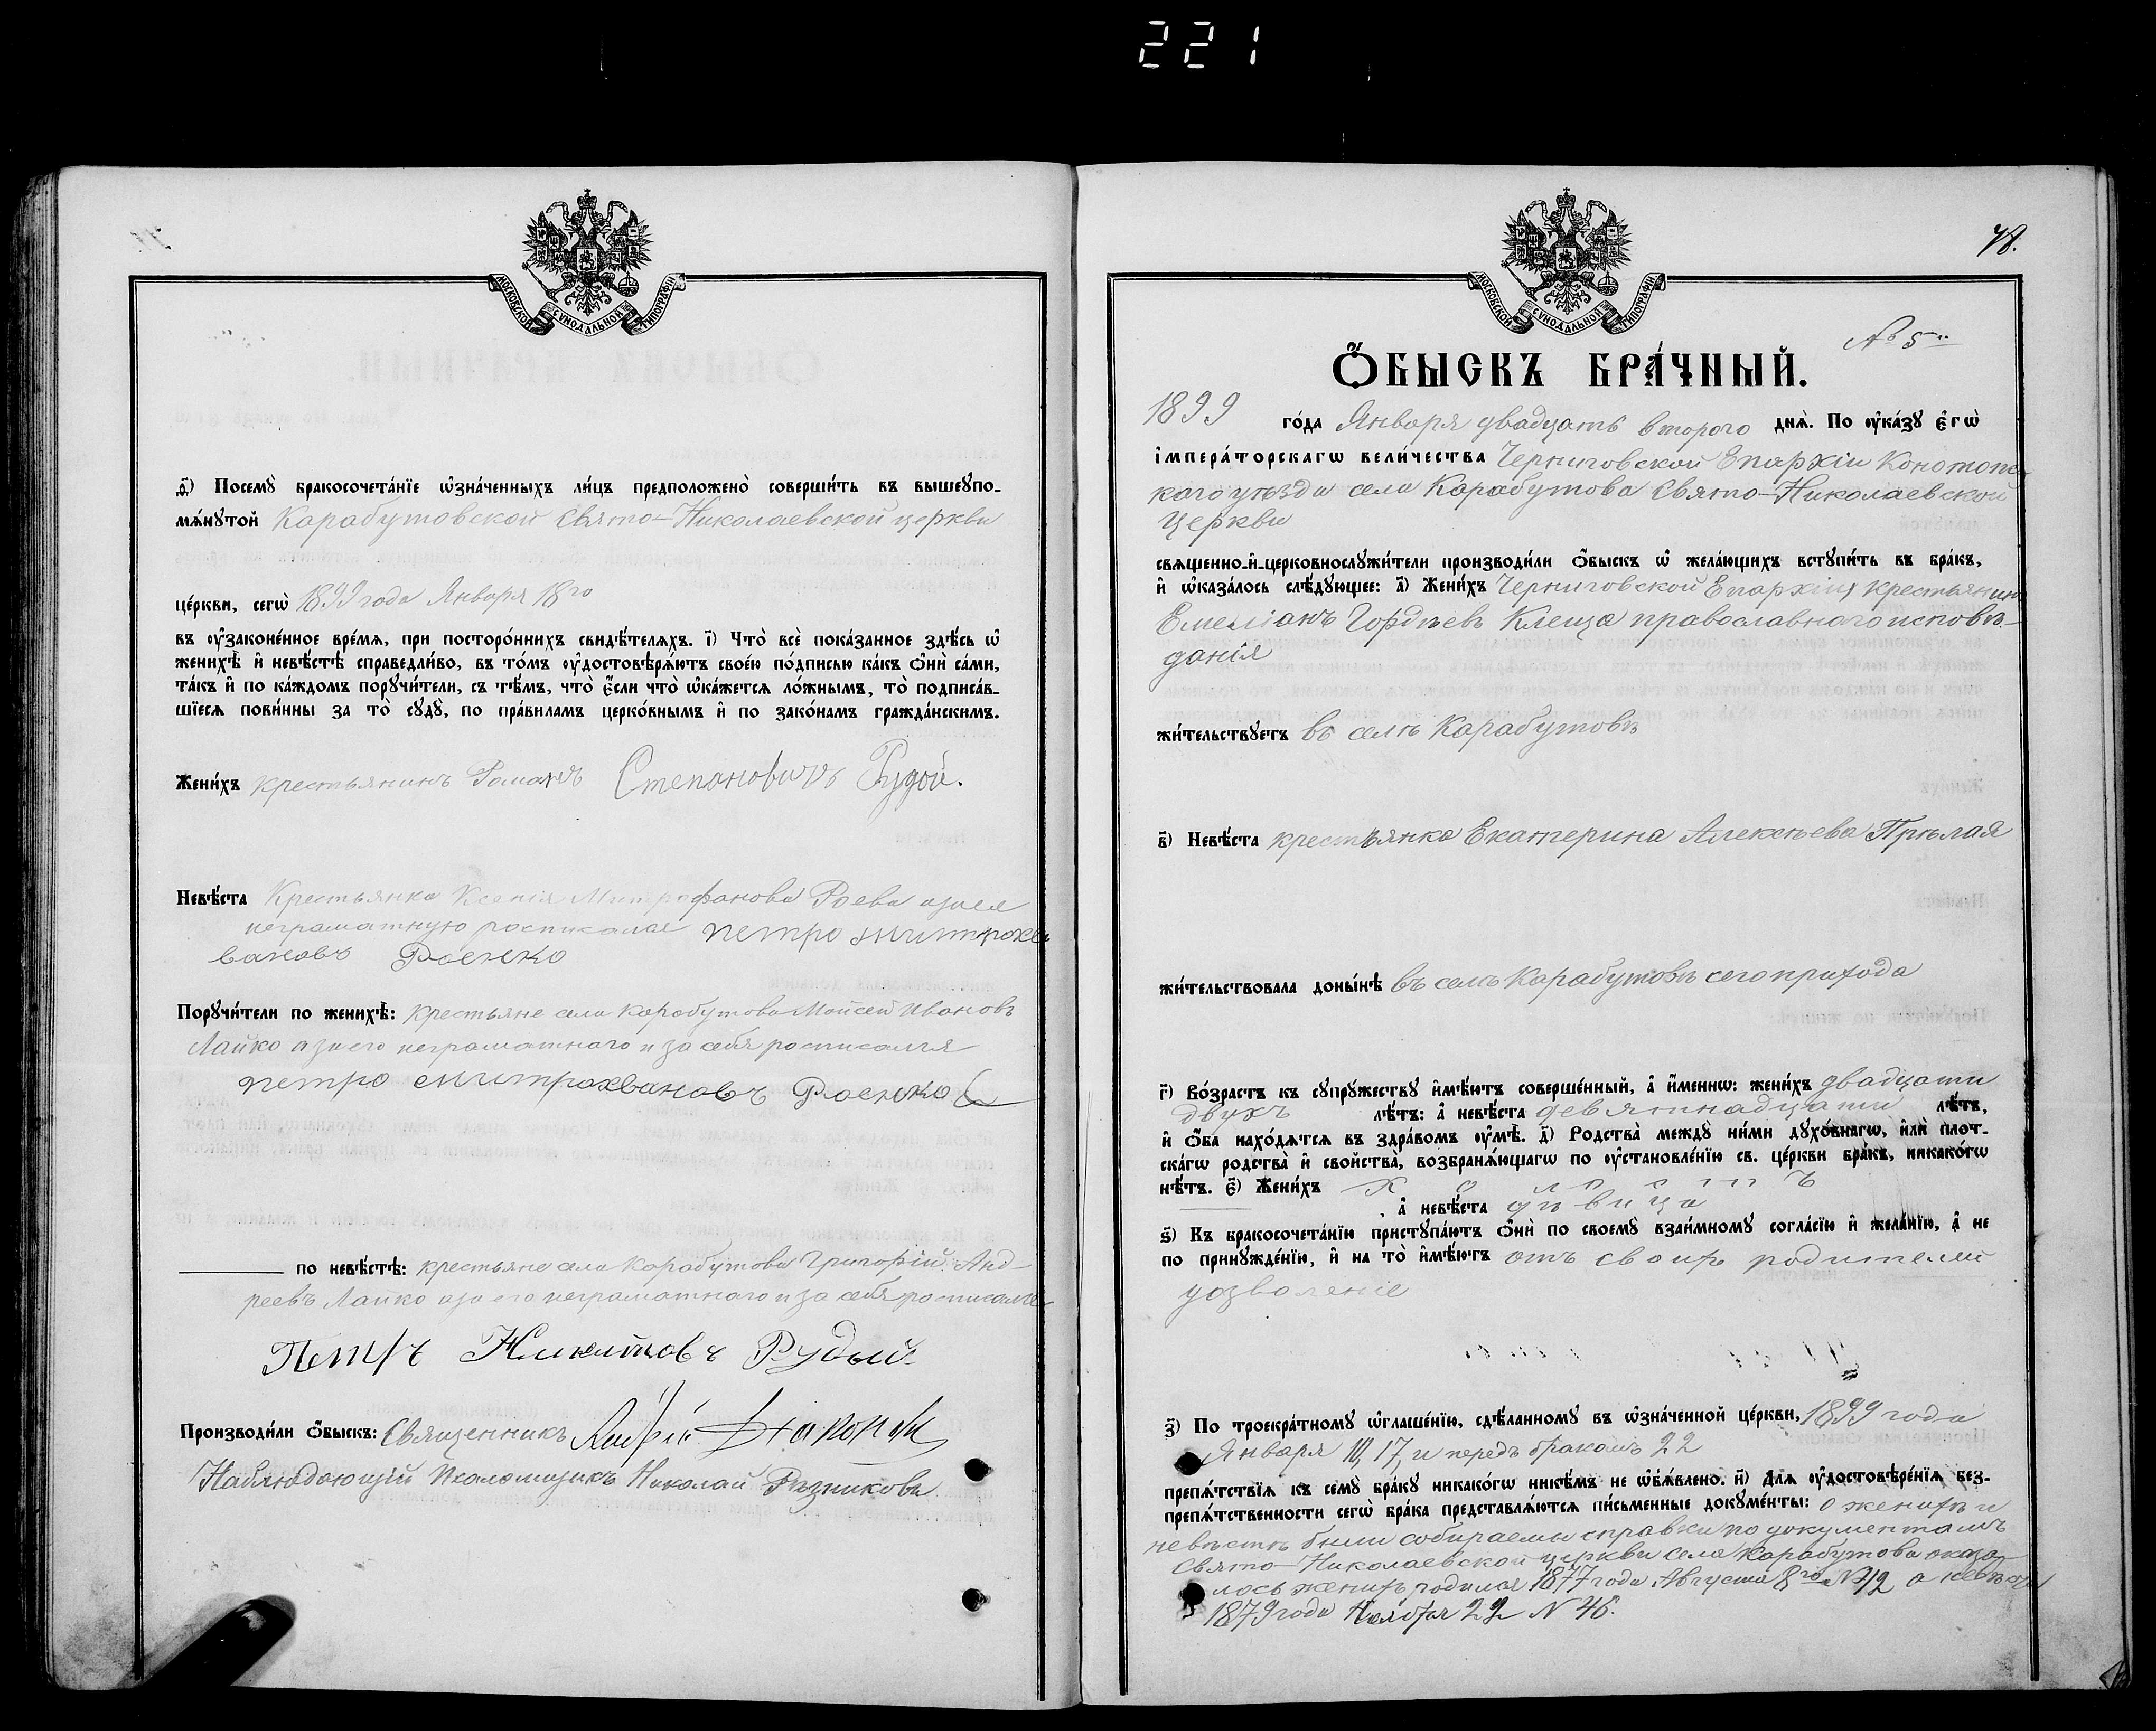 221
МОСКОВСКОЙ СѴНОДАЛЬНОЙ ТИПОГРАФІИ
д҃) Посемꙋ̀ бракосочета́нїе ѡ҆зна́ченныхъ ли́цъ предположено̀ соверши́ть въ вышеꙋпо-
мѧ́нꙋтой Карабутовской Свято-Николаевской церкви
це́ркви, сегѡ̀ 1899 года Января 18го
въ ᲂу҆законе́нное вре́мѧ, при посторо́ннихъ свидѣ́телѧхъ. і҃) Что̀ всѐ пока́занное здѣ́сь ѡ҆
женихѣ̀ и҆ невѣ́стѣ справедли́во, въ то́мъ ᲂу҆достовѣрѧ́ютъ свое́ю по́дписью ка́къ ѻ҆нѝ са́ми,
та́къ и҆ по ка́ждомъ порꙋчи́тели, съ тѣ́мъ, что̀ є҆́сли что̀ ѡ҆ка́жетсѧ ло́жнымъ, то̀ подписа́в-
шїесѧ пови́нны за то̀ сꙋдꙋ̀, по пра́виламъ церко́внымъ и҆ по зако́намъ гражда́нскимъ.
Жени́хъ крестьянинъ Романъ Степановичъ Рудой.
Невѣ́ста Крестьянка Ксенія Митрофанова Роева а за нея
неграматную росписался петро митрохв
вановъ Роенко
Порꙋчи́тели по женихѣ̀: крестьяне села Карабутова Мойсей Ивановъ
Лайко а за его неграматного и за себя росписался
петро митрохвановъ Роенко
по невѣ́стѣ: крестьяне села Карабутова Григорій Анд-
реевъ Лайко а за его неграматного и за себя росписался
Петръ Никитовъ Рудый
Производи́ли ѻ҆́быскъ: Священникъ
Наблюдающій Псаломщикъ Николай
48.
МОСКОВСКОЙ СѴНОДАЛЬНОЙ ТИПОГРАФІИ
№ 5
Ѻ҆́БЫСКЪ БРА́ЧНЫЙ.
1899 го́да Января двадцать второго днѧ̀. По ᲂу҆ка́зꙋ є҆гѡ̀
і҆мпера́торскагѡ вели́чества Черниговской Епархіи Конотопс-
каго уѣзда села Карабутова Свято-Николаевской
Церкви
свѧщенно-и҆-церковнослꙋжи́тели производи́ли ѻ҆́быскъ ѡ҆ жела́ющихъ встꙋпи́ть въ бра́къ,
и҆ ѡ҆каза́лось слѣ́дꙋющее: а҃) Жени́хъ Черниговской Епархіи крестьянинъ
Емеліанъ Гордѣевъ Клеща православного исповѣ-
данія
жи́тельствꙋетъ въ селѣ Карабутовѣ
в҃) Невѣ́ста крестьянка Екатерина Алексѣева Прѣлая
жи́тельствовала доны́нѣ въ селѣ Карабутовѣ сего прихода
г҃) Во́зрастъ къ сꙋпрꙋ́жествꙋ и҆мѣ́ютъ соверше́нный, а҆ и҆́меннѡ: жени́хъ двадцати
двухъ лѣ́тъ: а҆ невѣ́ста девятнадцати лѣ́тъ,
и҆ ѻ҆́ба нахо́дѧтсѧ въ здра́вомъ ᲂу҆мѣ̀. д҃) Родства̀ междꙋ̀ ни́ми дꙋхо́внагѡ, и҆лѝ плот-
ска́гѡ родства̀ и҆ свойства̀, возбранѧ́ющагѡ по ᲂу҆становле́нїю св. це́ркви бра́къ, никако́гѡ
нѣ́тъ. є҃) Жени́хъ холостъ
а҆ невѣ́ста дѣвица
ѕ҃) Къ бракосочета́нїю пристꙋпа́ютъ ѻ҆нѝ по своемꙋ̀ взаи́мномꙋ согла́сїю и҆ жела́нїю, а҆ не
по принꙋжде́нїю, и҆ на то̀ и҆мѣ́ютъ отъ своихъ родителей
дозволеніе
з҃) По троекра́тномꙋ ѡ҆глаше́нїю, сдѣ́ланномꙋ въ ѡ҆зна́ченной це́ркви, 1899 года
Января 10, 17, и передъ бракомъ 22
препѧ́тствїѧ къ семꙋ̀ бра́кꙋ никако́гѡ никѣ́мъ не ѡ҆б̾ѧ́влено. и҃) Длѧ ᲂу҆достовѣре́нїѧ без-
препѧ́тственности сегѡ̀ бра́ка представлѧ́ютсѧ пи́сьменные докꙋме́нты: о женихѣ и
невѣстѣ были собираемы справки по документамъ
Свято-Николаевской церкви села Карабутова оказа
лось женихъ родился 1877 года Августа 8го №
1879 года Ноября 22 № 46.